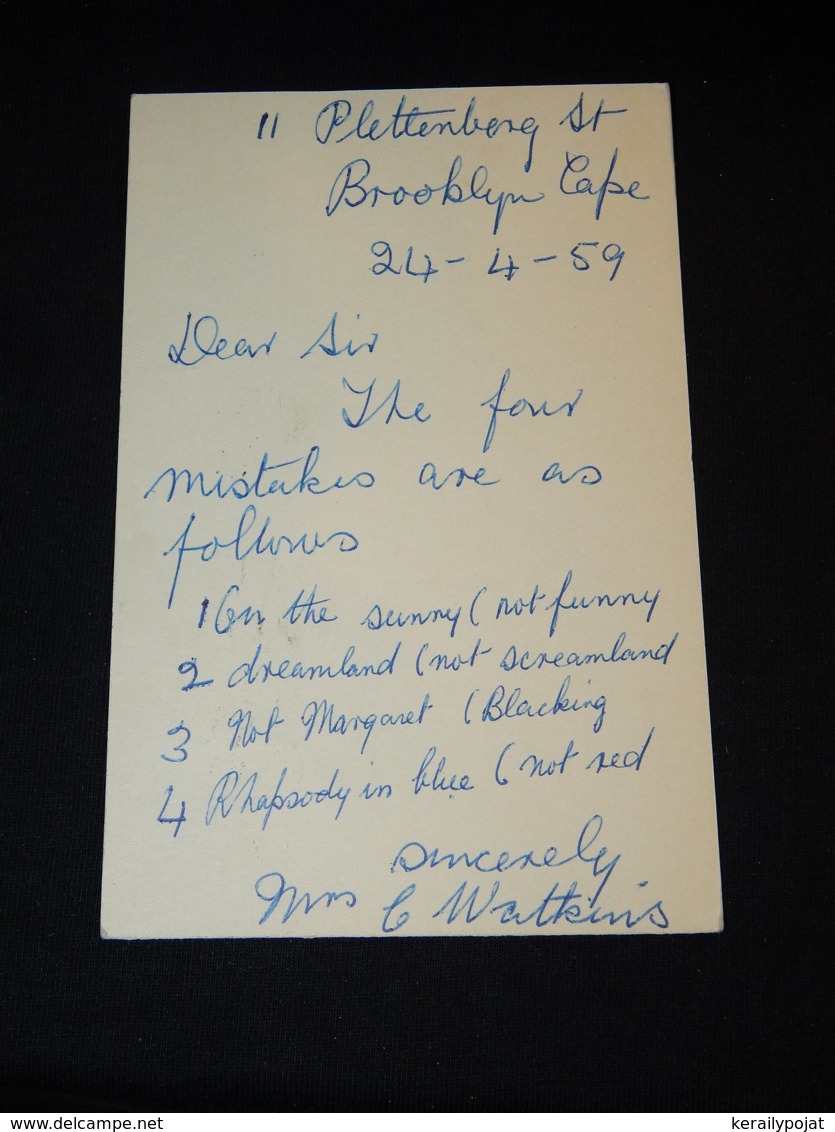 11 Plettenberg St
Brooklyn Cape
24-4-59
Dear Sir
The four
mistakes are as
follows
1 On the sunny (not funny
2 dreamland (not screamland
3 Not Margaret (Blacking
4 Rhapsody in blue (not red
sincerely
Mrs C Watkins
©delcampe.net
kerailypojat